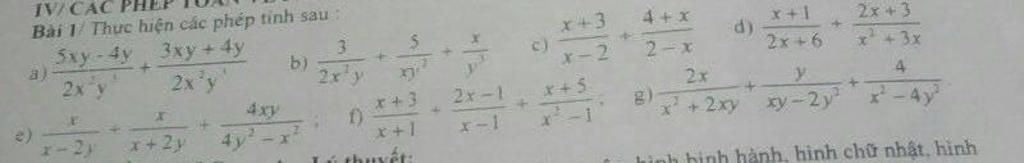 IV/ CÁC PHÉP
Bài 1/ Thực hiện các phép tính sau :
a) (5xy - 4y)/(2x²y³) + (3xy + 4y)/(2x²y³) b) 3/(2x²y) + 5/(xy²) + x/y³ c) (x + 3)/(x - 2) + (4 + x)/(2 - x) d) (x + 1)/(2x + 6) + (2x + 3)/(x² + 3x)
e) x/(x - 2y) + x/(x + 2y) + 4xy/(4y² - x²) ; f) (x + 3)/(x + 1) + (2x - 1)/(x - 1) + (x + 5)/(x² - 1) ; g) 2x/(x² + 2xy) + y/(xy - 2y²) + 4/(x² - 4y²)
thuyết:
bình hành, hình chữ nhật, hình